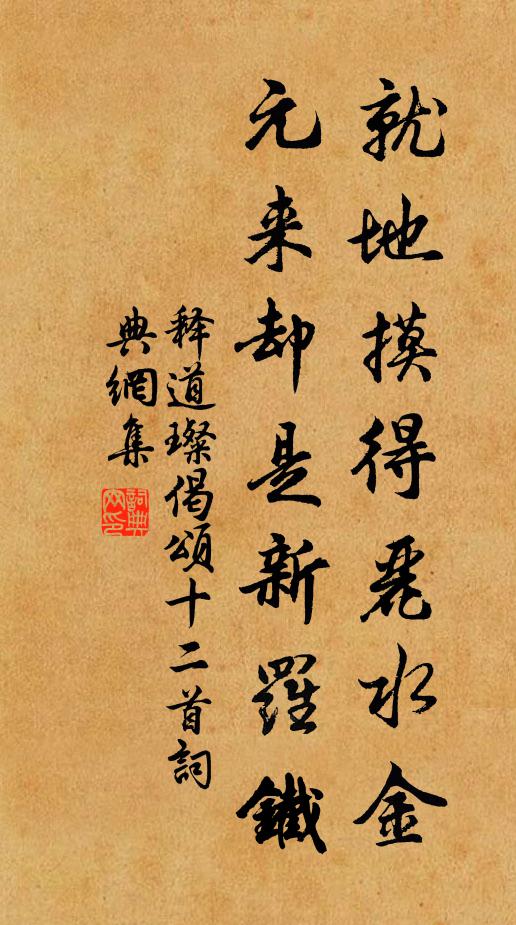 就地摸得麗水金
元来却是新羅鐵
释道璨偈頌十二首詞
典網集
詞典网印